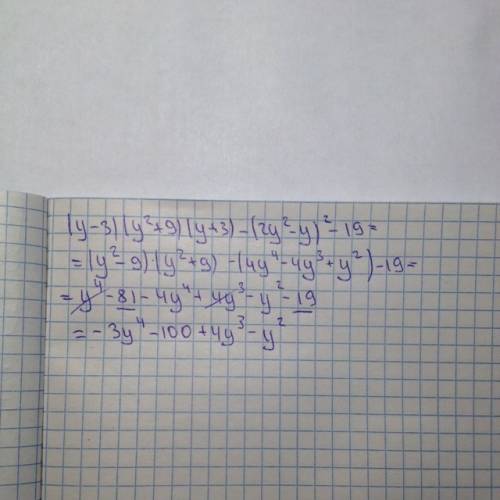 (y-3)(y²+9)(y+3)-(2y²-y)²-19=
=(y²-9)(y²+9)-(4y⁴-4y³+y²)-19=
=y⁴-81-4y⁴+4y³-y²-19
=-3y⁴-100+4y³-y²